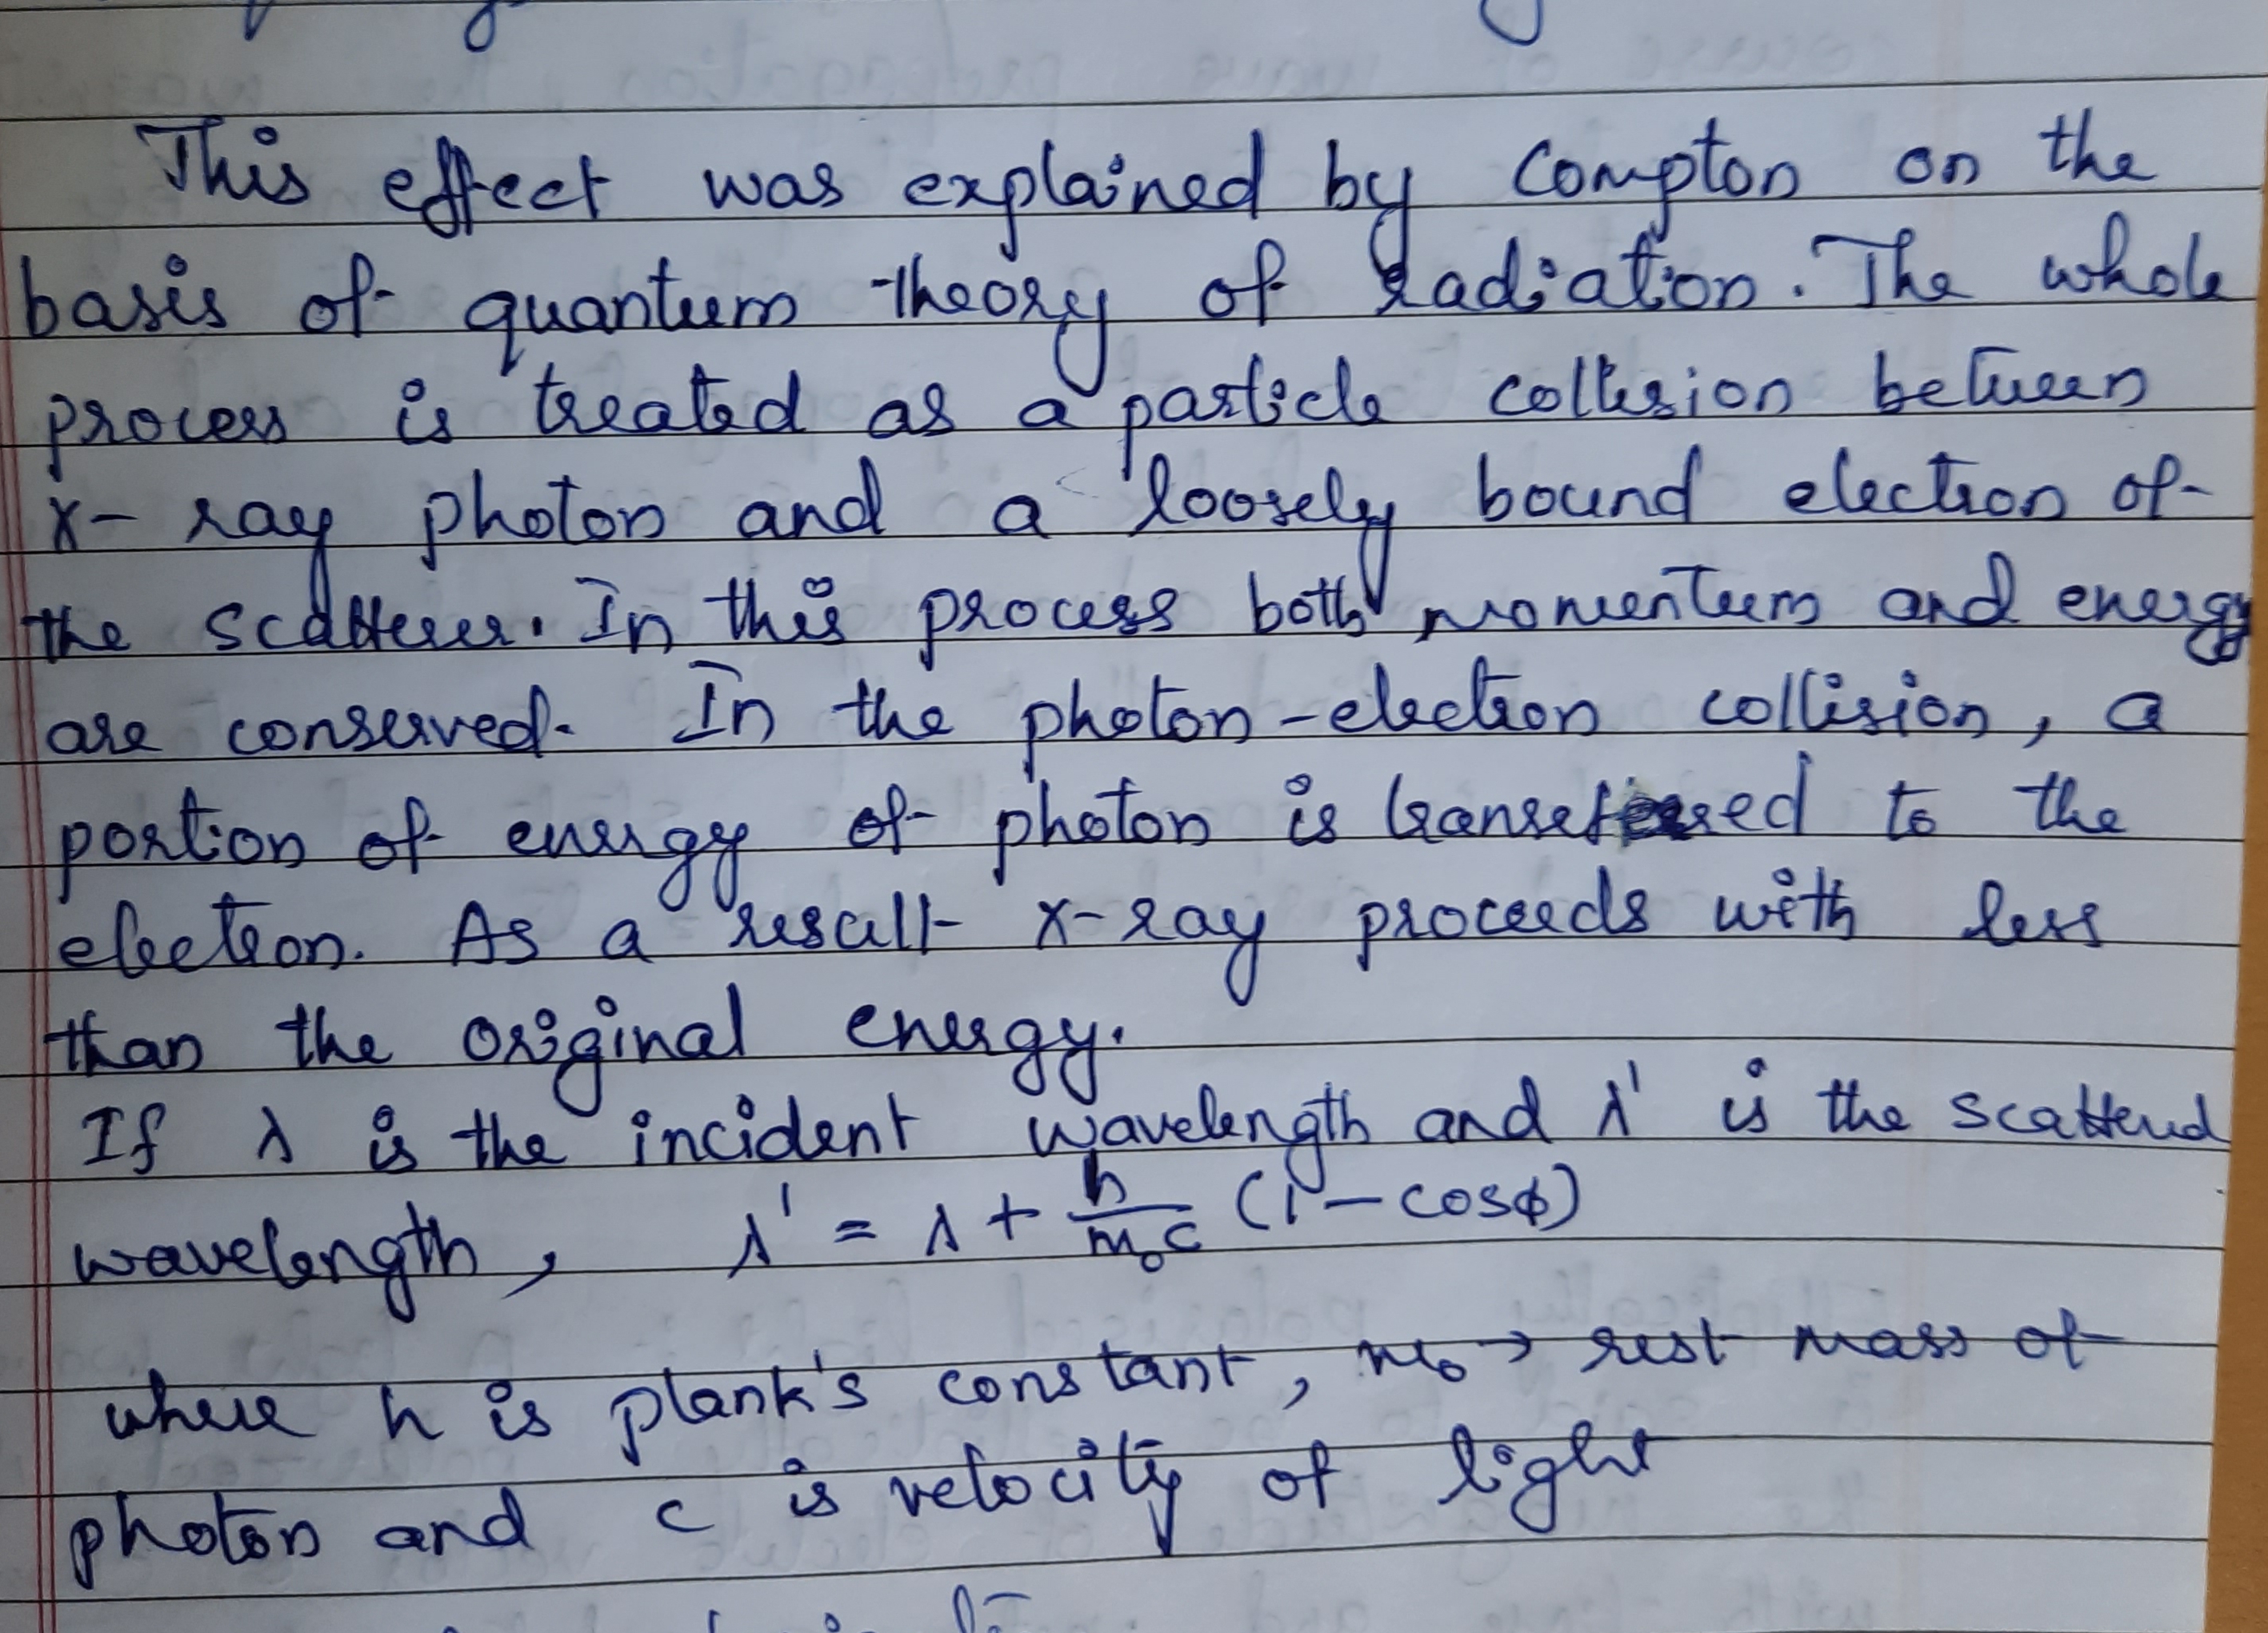 This effect was explained by Compton on the
basis of quantum theory of radiation. The whole
process is treated as a particle collision between
X-ray photon and a loosely bound electron of
the scatterer. In this process both momentum and energy
are conserved. In the photon-electron collision, a
portion of energy of photon is transferred to the
electron. As a result X-ray proceeds with less
than the original energy.
If λ is the incident wavelength and λ' is the scattered
wavelength, λ' = λ + h/m₀c (1 - cosϕ)
where h is plank's constant, m₀ → rest mass of
photon and c is velocity of light